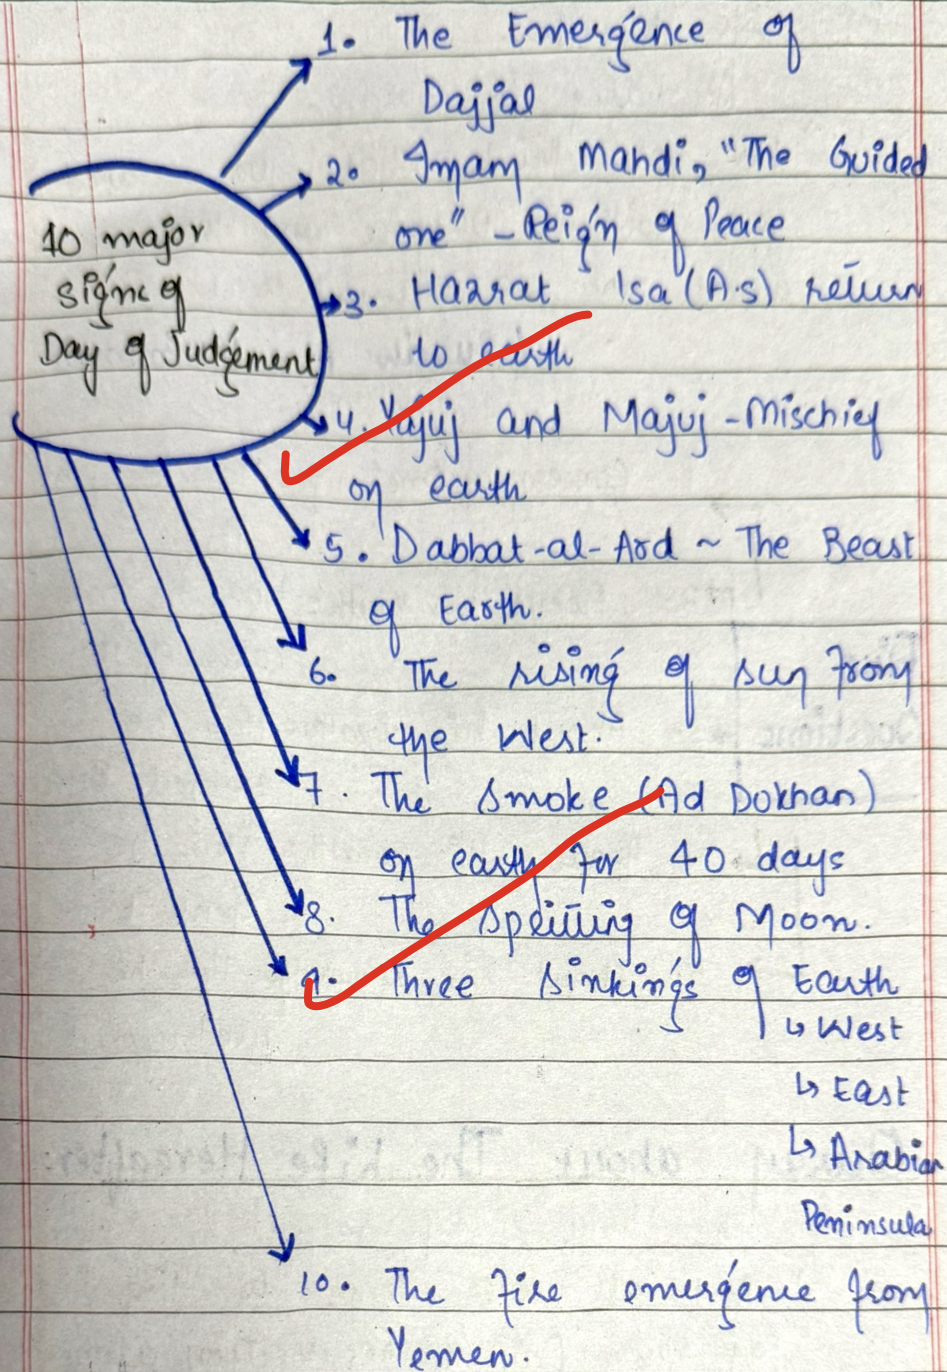 10 major
signs of
Day of Judgement
1. The Emergence of
Dajjal
2. Imam Mahdi, "The Guided
one" - Reign of Peace
3. Hazrat Isa (A.s) return
to earth
4. Yajuj and Majuj - Mischief
on earth
5. Dabbat-al-Ard ~ The Beast
of Earth.
6. The rising of sun from
the West.
7. The Smoke (Ad Dokhan)
on earth for 40 days
8. The Splitting of Moon.
9. Three Sinkings of Earth
↳ West
↳ East
↳ Arabian
Peninsula
10. The fire emergence from
Yemen.